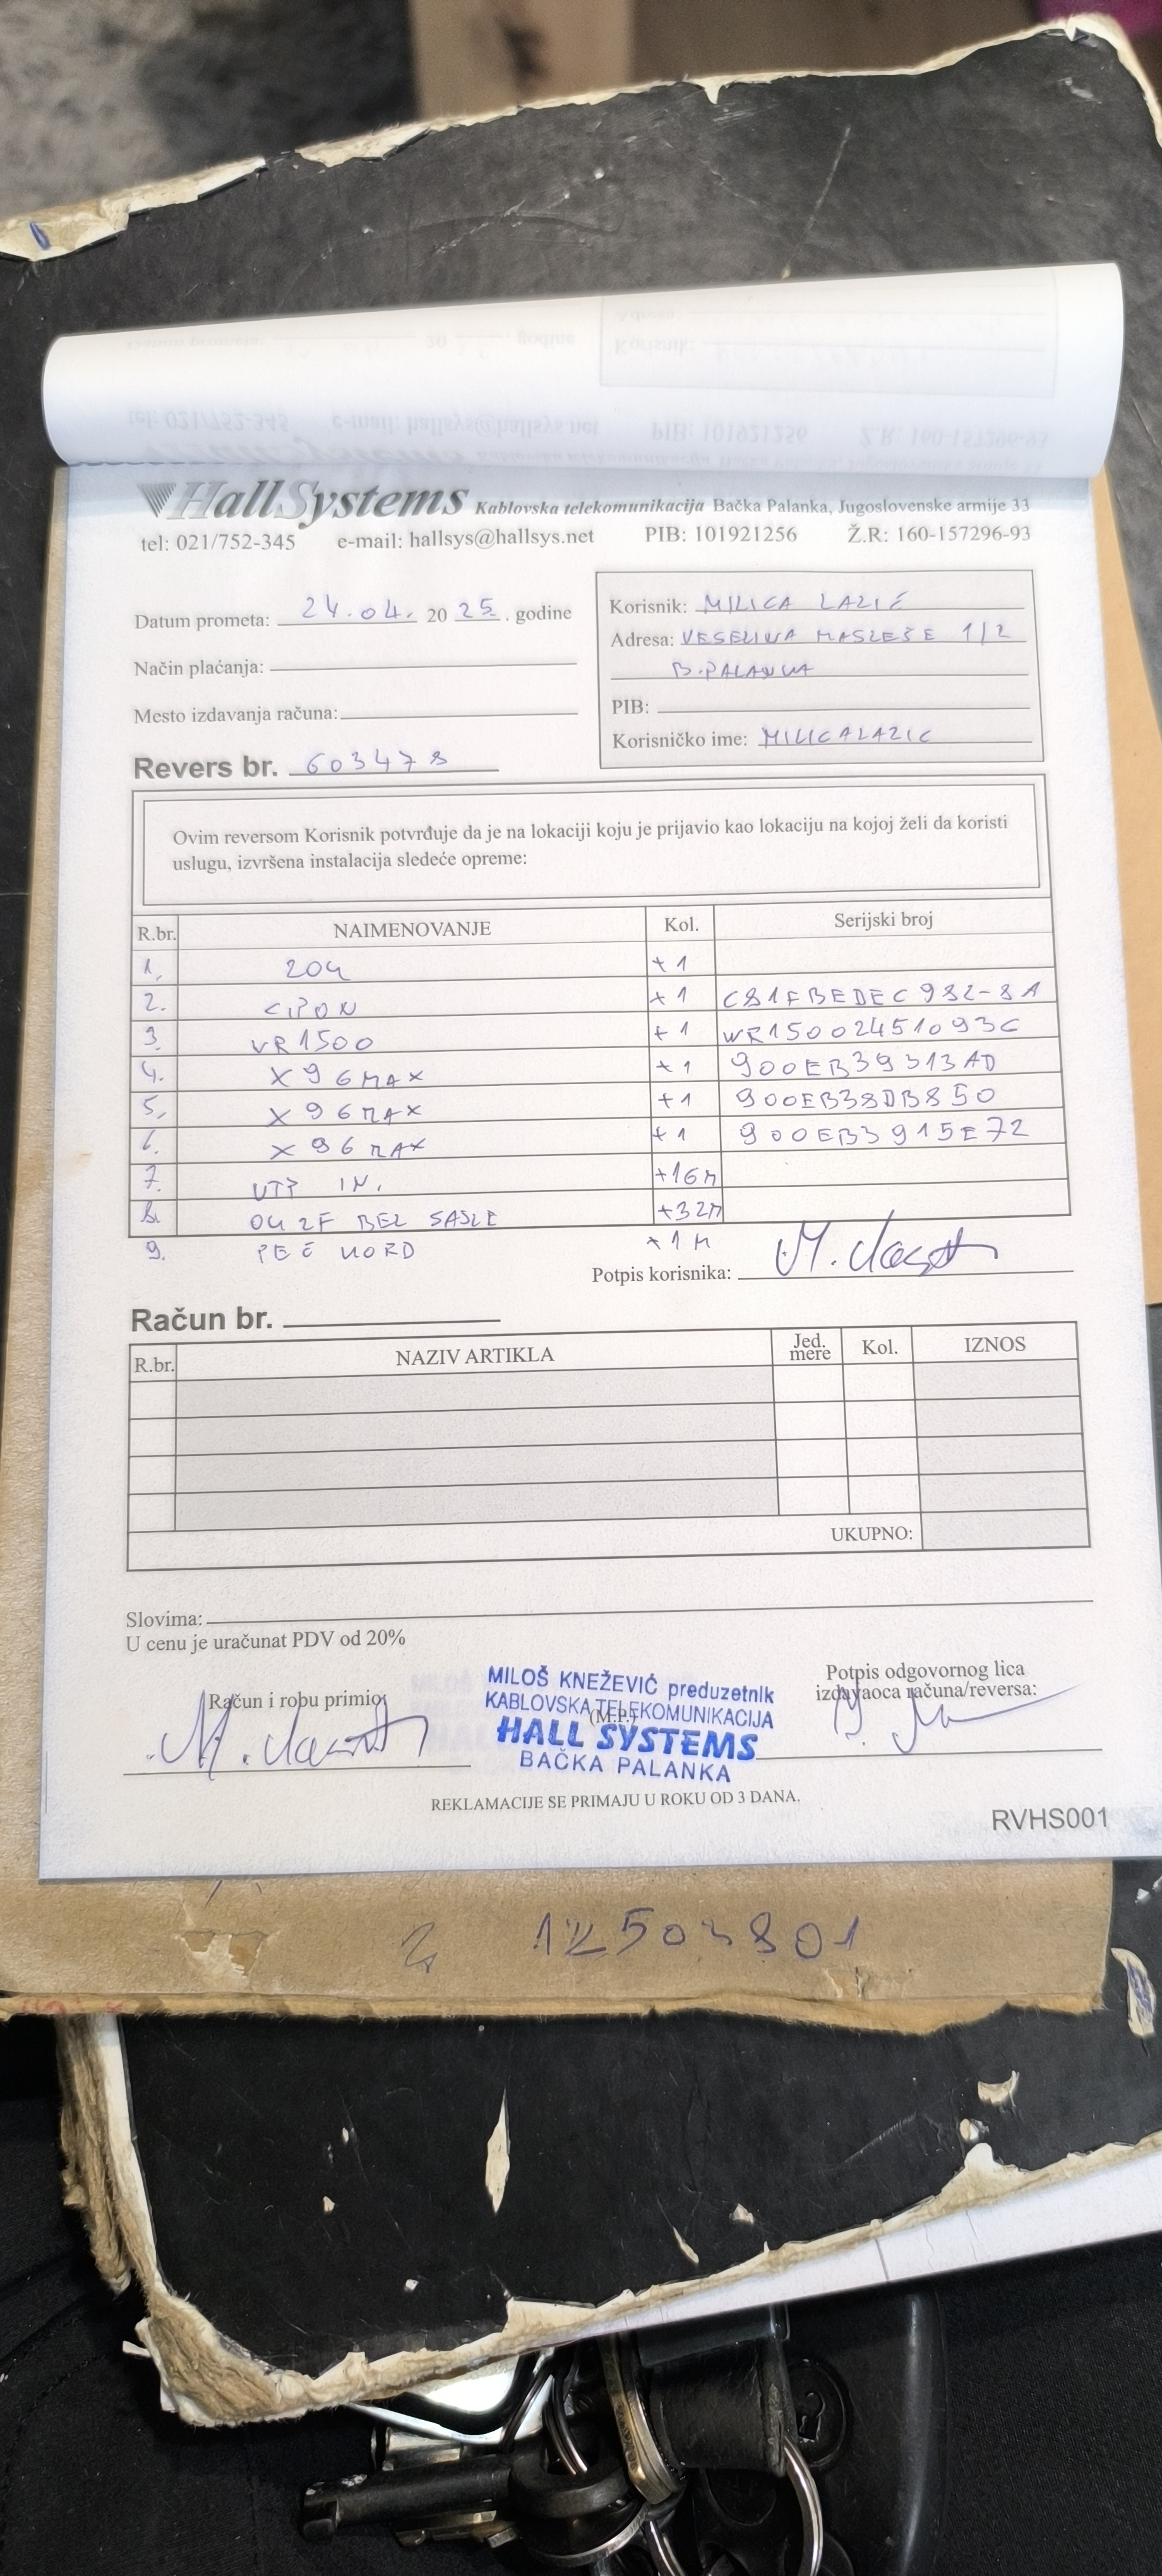 HallSystems Kablovska telekomunikacija Bačka Palanka, Jugoslovenske armije 33
tel: 021/752-345 e-mail: hallsys@hallsys.net PIB: 101921256 Ž.R: 160-157296-93
Datum prometa: 24.04. 20 25. godine
Način plaćanja:
Mesto izdavanja računa:
Revers br. 603478
Korisnik: MILICA LAZIĆ
Adresa: VESELINA MASLEŠE 1/2
B.PALANKA
PIB:
Korisničko ime: MILICALAZIC
Ovim reversom Korisnik potvrđuje da je na lokaciji koju je prijavio kao lokaciju na kojoj želi da koristi
uslugu, izvršena instalacija sledeće opreme:
R.br. NAIMENOVANJE Kol. Serijski broj
1. ZOU +1
2. GPON +1 C81FBEDEC932-8A
3. VR1500 +1 WR15002451093C
4. X96MAX +1 900EB39313AD
5. X96MAX +1 900EB38DB850
6. X96MAX +1 900EB3915E72
7. UTP IN. +16M
8. OU 2F BEZ SAJLE +32M
9. PEČ KORD +1M
Potpis korisnika:
Račun br.
R.br. NAZIV ARTIKLA Jed. mere Kol. IZNOS
UKUPNO:
Slovima:
U cenu je uračunat PDV od 20%
Račun i robu primio:
MILOŠ KNEŽEVIĆ preduzetnik
KABLOVSKA TELEKOMUNIKACIJA
(M.P.)
HALL SYSTEMS
BAČKA PALANKA
Potpis odgovornog lica
izdavaoca računa/reversa:
REKLAMACIJE SE PRIMAJU U ROKU OD 3 DANA.
RVHS001